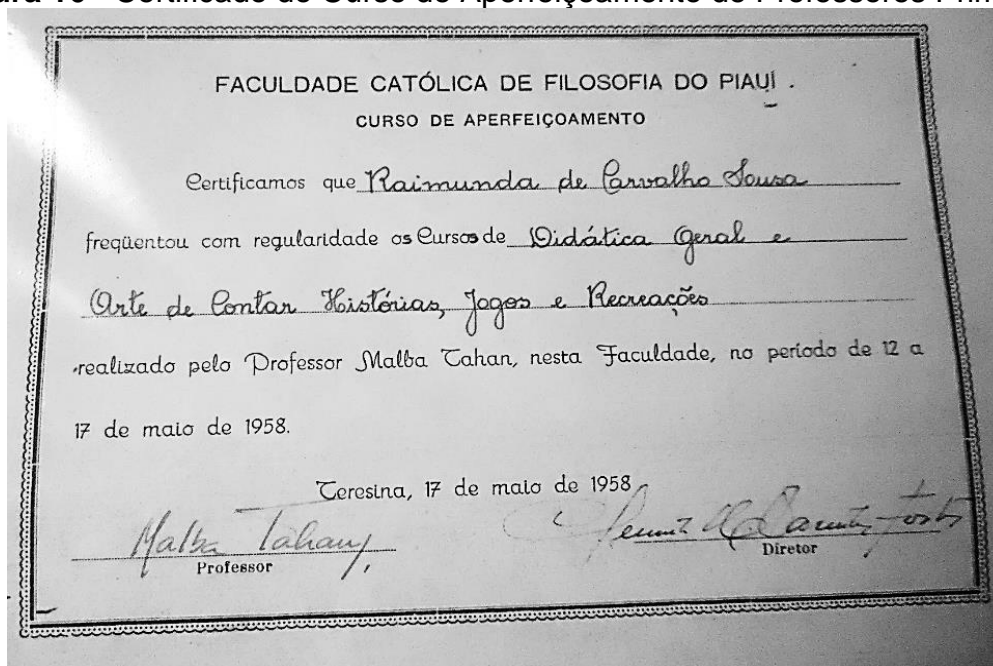 Certificado do Curso de Aperfeiçoamento de Professores
FACULDADE CATÓLICA DE FILOSOFIA DO PIAUÍ .
CURSO DE APERFEIÇOAMENTO
Certificamos que Raimunda de Carvalho Sousa
freqüentou com regularidade os Cursos de Didática Geral e
Arte de Contar Histórias, Jogos e Recreações
realizado pelo Professor Malba Tahan, nesta Faculdade, no período de 12 a
17 de maio de 1958.
Teresina, 17 de maio de 1958
Malba Tahan
Professor
Diretor